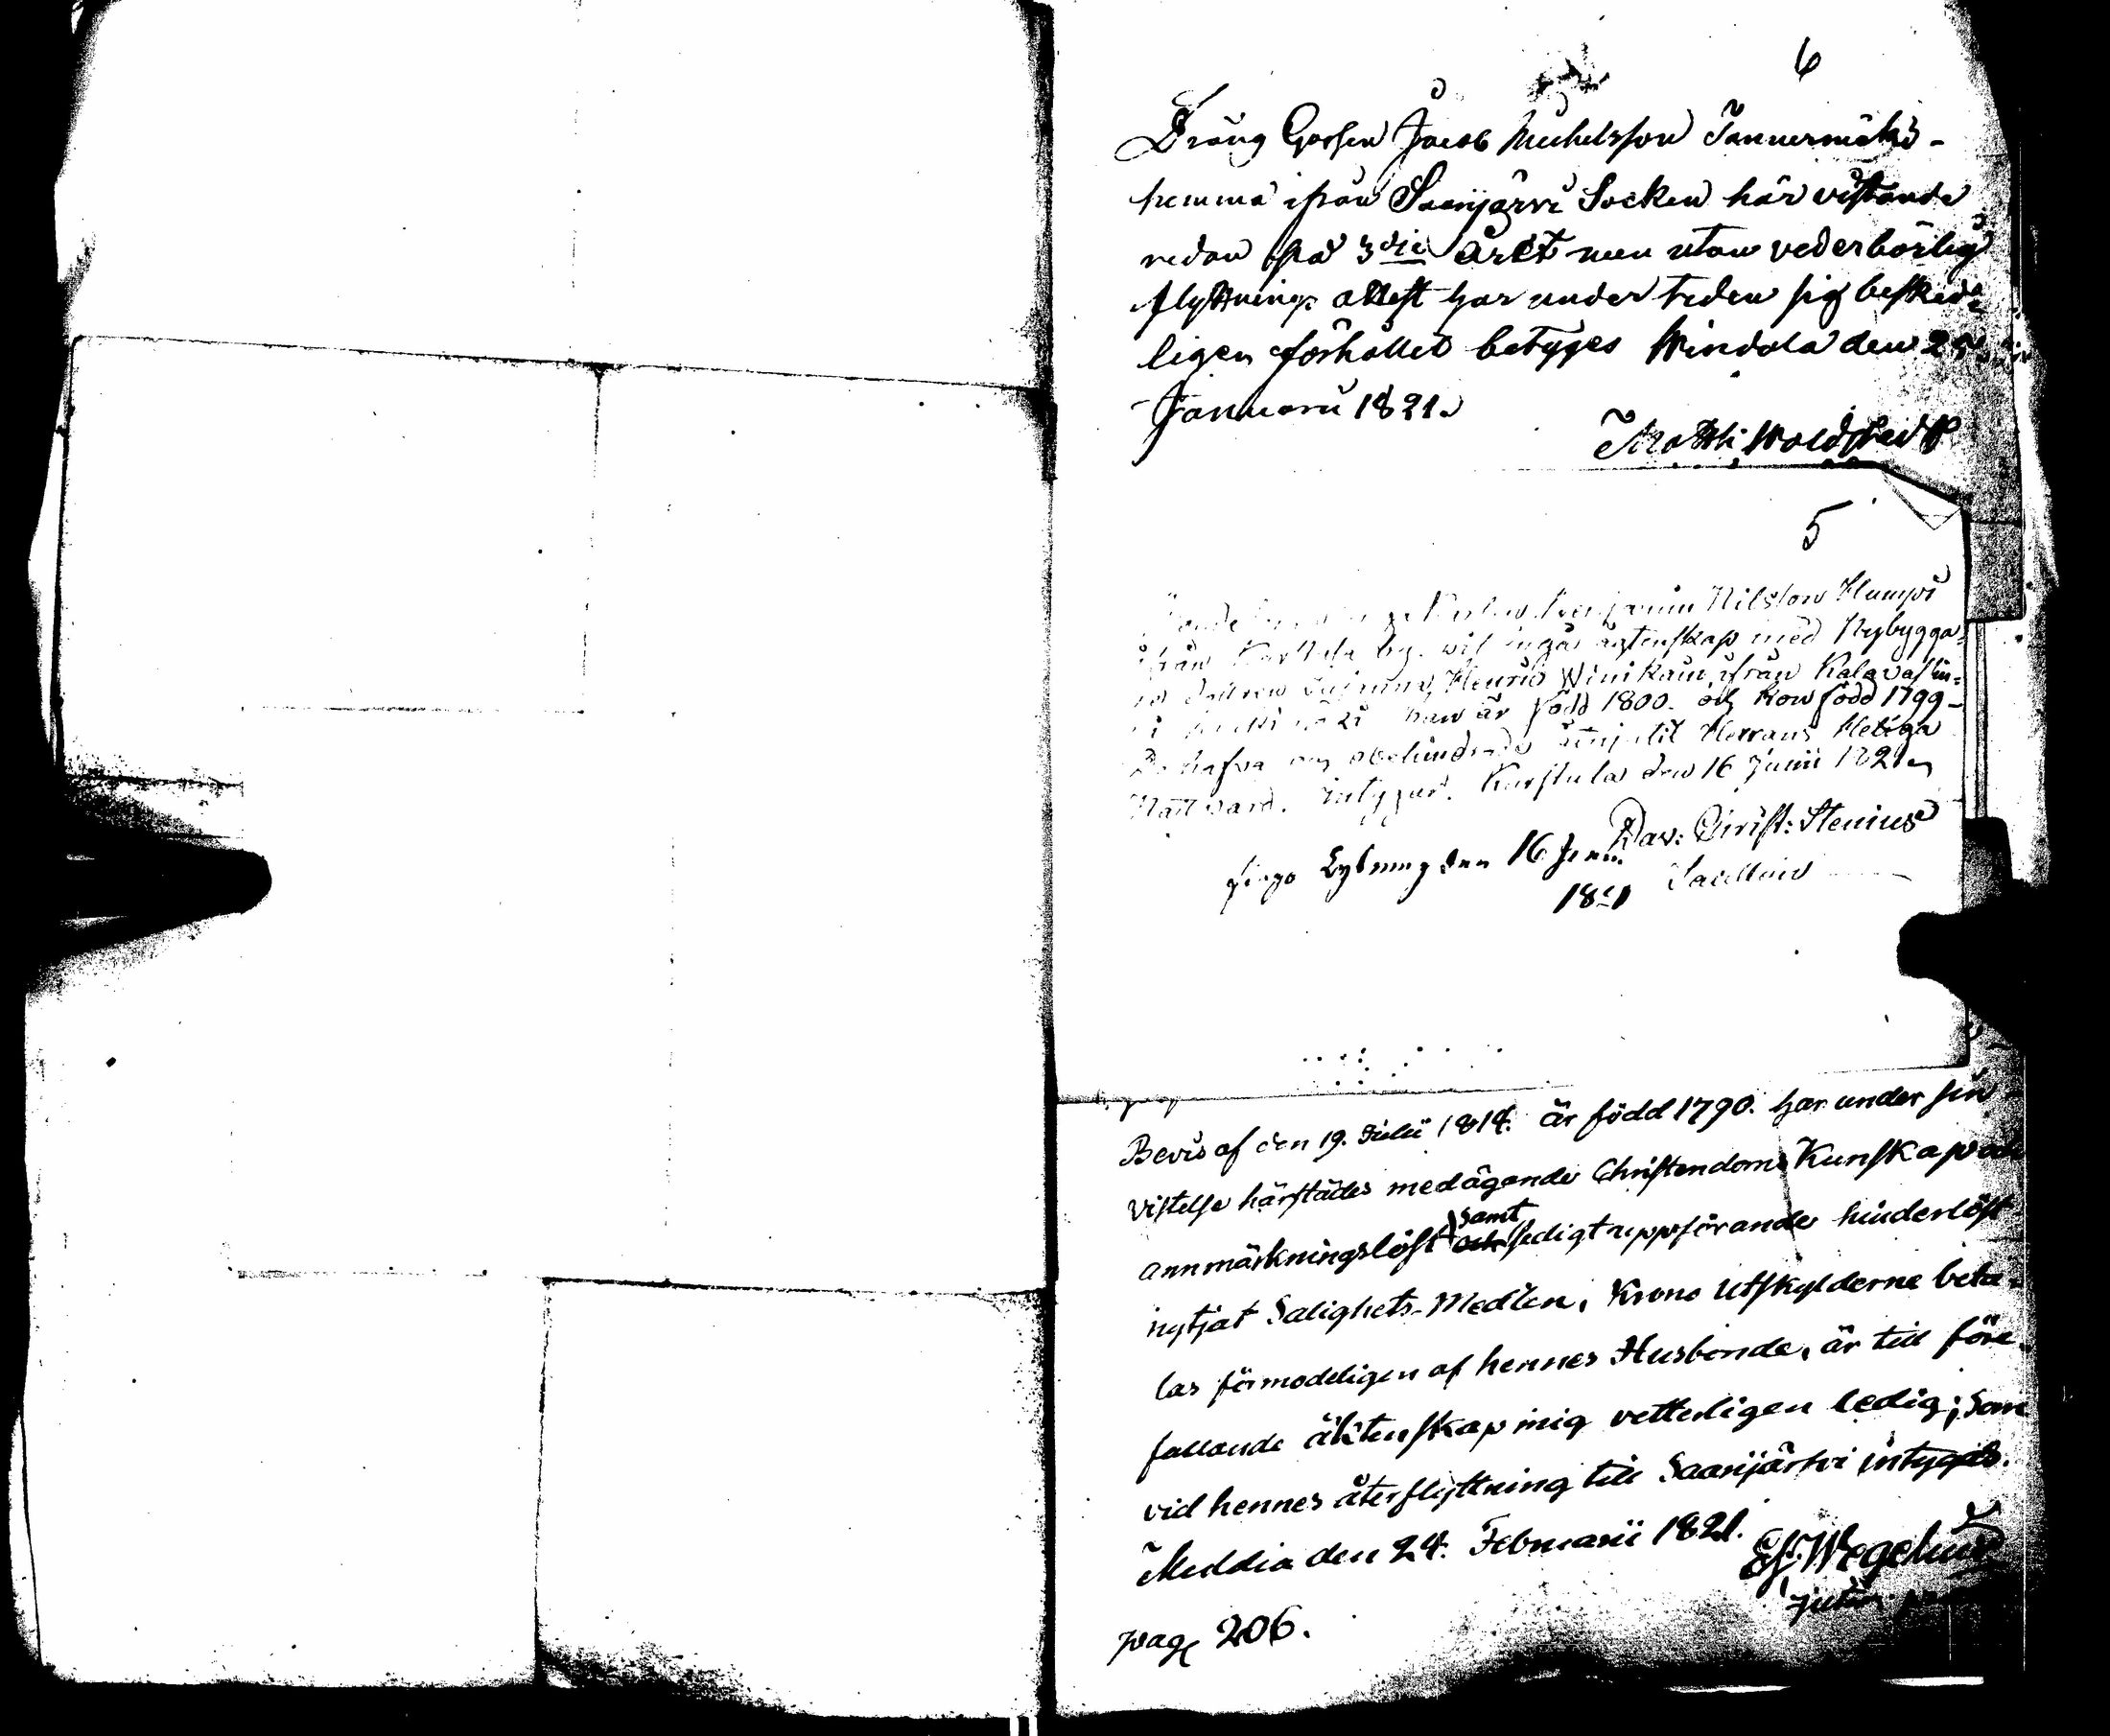 6
Dräng Gossen Jacob Michelsson Tannermäki
hemma ifrån Saarijärvi Socken här vistande
redan på 3die året men utan vederbörlig
flyttnings attest har under tiden sig beskede
ligen förhållit betyges Windala den 25
Januarii 1821.
Matth: Woldstedt
5
Benjamin Nilsson Humpi
ifrån Karstula by. vil ingå ägtenskap med Nybygga-
Henric Winikain ifrån Kalavasti-
han är född 1800. och hon född 1799
hafva obehindradt åtnjutit Herrans Heliga
Nattvard. intygar. Karstula den 16 Junii 1821
Dav: Christ: Stenius
Lysning den 16 Junii
1821
Sacellan
Bevis af den 19. Julii 1818. är född 1790. har under sin
vistelse härstädes medägande Christendoms Kunskap och
annmärkningslöst samt sedigt uppförande hinderlöst
nytjat Salighets-Medlen, Krono Utskylderne beta-
las förmodeligen af hennes Husbonde, är till före-
fallande äktenskap mig vetterligen ledig; som
vid hennes återflyttning till Saarijärvi intygas.
den 24. Februarii 1821.
Es. Wegelius
pag 206.